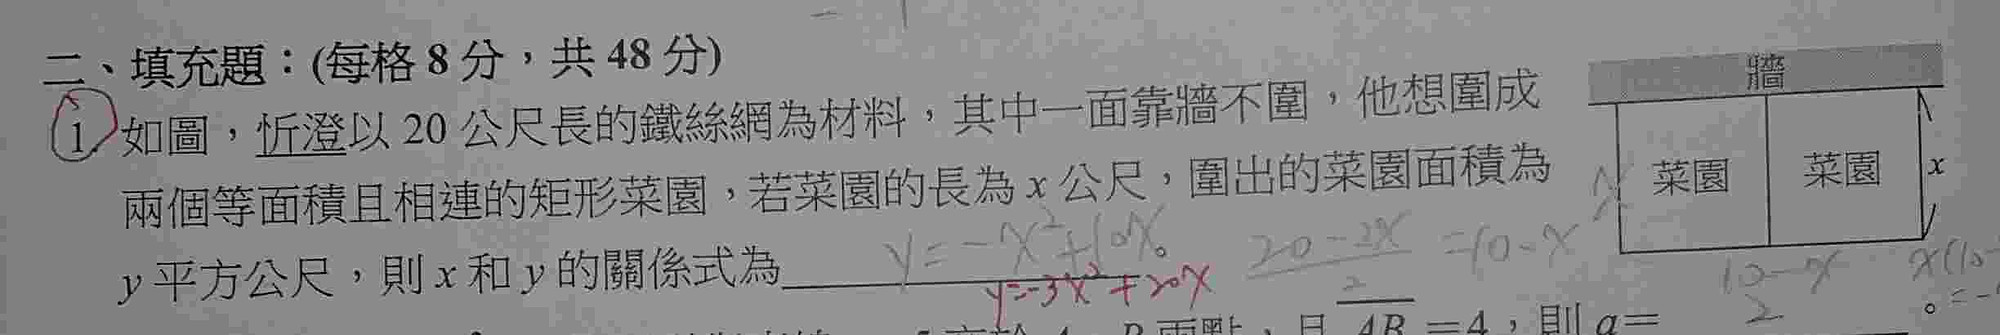 二、填充題：(每格 8 分，共 48 分)
牆
1. 如圖，忻澄以 20 公尺長的鐵絲網為材料，其中一面靠牆不圍，他想圍成
兩個等面積且相連的矩形菜園，若菜園的長為 x 公尺，圍出的菜園面積為
菜園 菜園 x
y 平方公尺，則 x 和 y 的關係式為 y=-x²+10x。
20-2x/2 =10-x
y=-3x²+20x
10-x/2
AB=4，則 a=